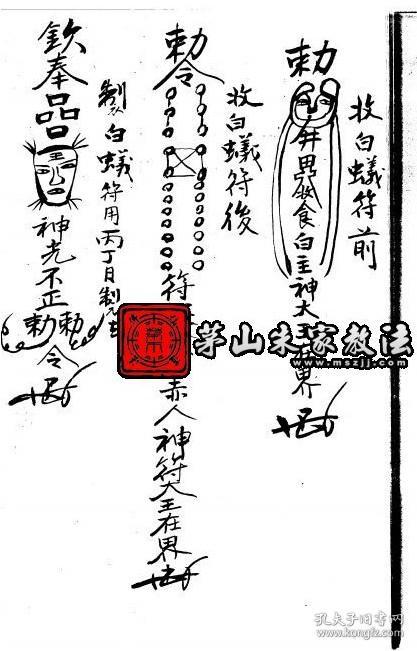 收白蟻符前
勅
食白主神大王在界
收白蟻符後
勅令
符
赤人神符大王在界
製白蟻符用丙丁日製
欽奉
品品
神光不正
勅勅
令
茅山朱家教法
www.mszjj.com
孔夫子旧书网